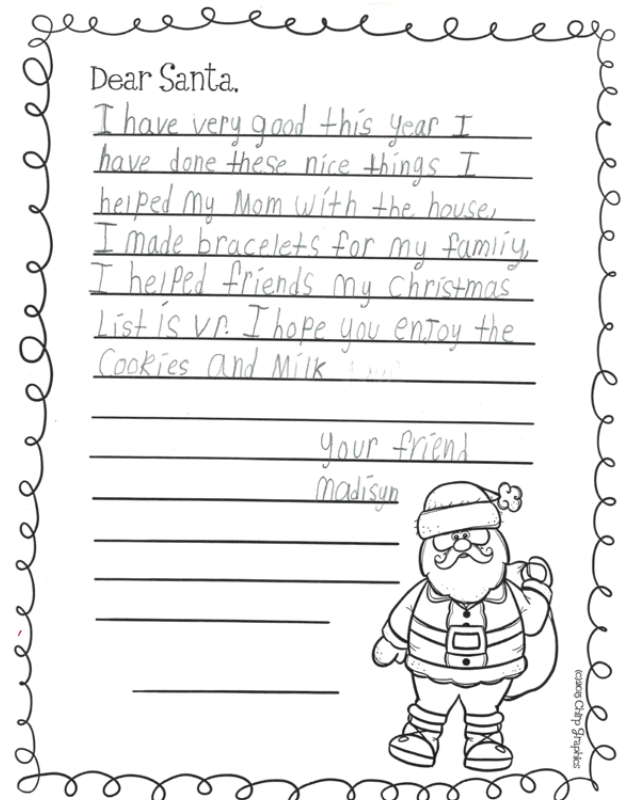 Dear Santa,
I have very good this year I
have done these nice things I
helped my Mom with the house,
I made bracelets for my famliy,
I helped friends my christmas
List is vr. I hope you enjoy the
Cookies and Milk
your friend
madisyn
(c)2015 Chirp Graphics